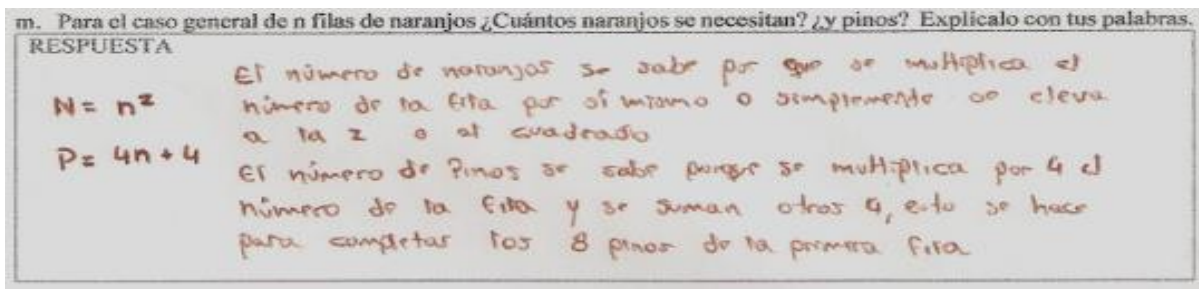 m. Para el caso general de n filas de naranjos ¿Cuántos naranjos se necesitan? ¿y pinos? Explicalo con tus palabras.
RESPUESTA
El número de naranjos se sabe por que se multiplica el
N = n² número de la fila por sí mismo o simplemente se eleva
a la 2 o al cuadrado
P = 4n + 4
El número de Pinos se sabe porque se multiplica por 4 el
número de la fila y se suman otros 4, esto se hace
para completar los 8 pinos de la primera fila